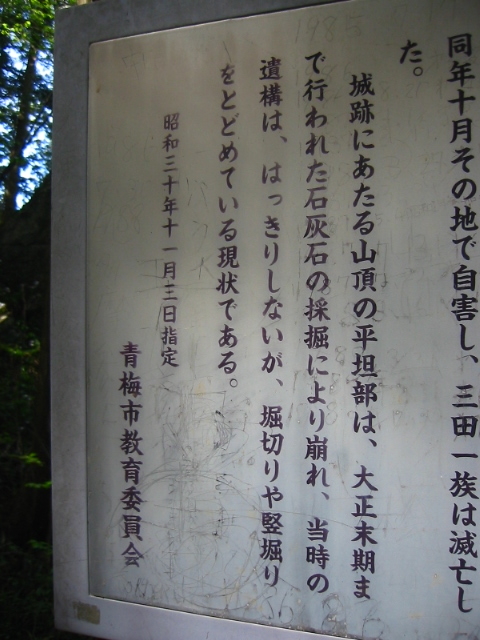 同年十月その地で自害し、三田一族は滅亡し
た。
城跡にあたる山頂の平坦部は、大正末期ま
で行われた石灰石の採掘により崩れ、当時の
遺構は、はっきりしないが、堀切りや竪堀り
をとどめている現状である。
昭和三十年十一月三日指定
青梅市教育委員会